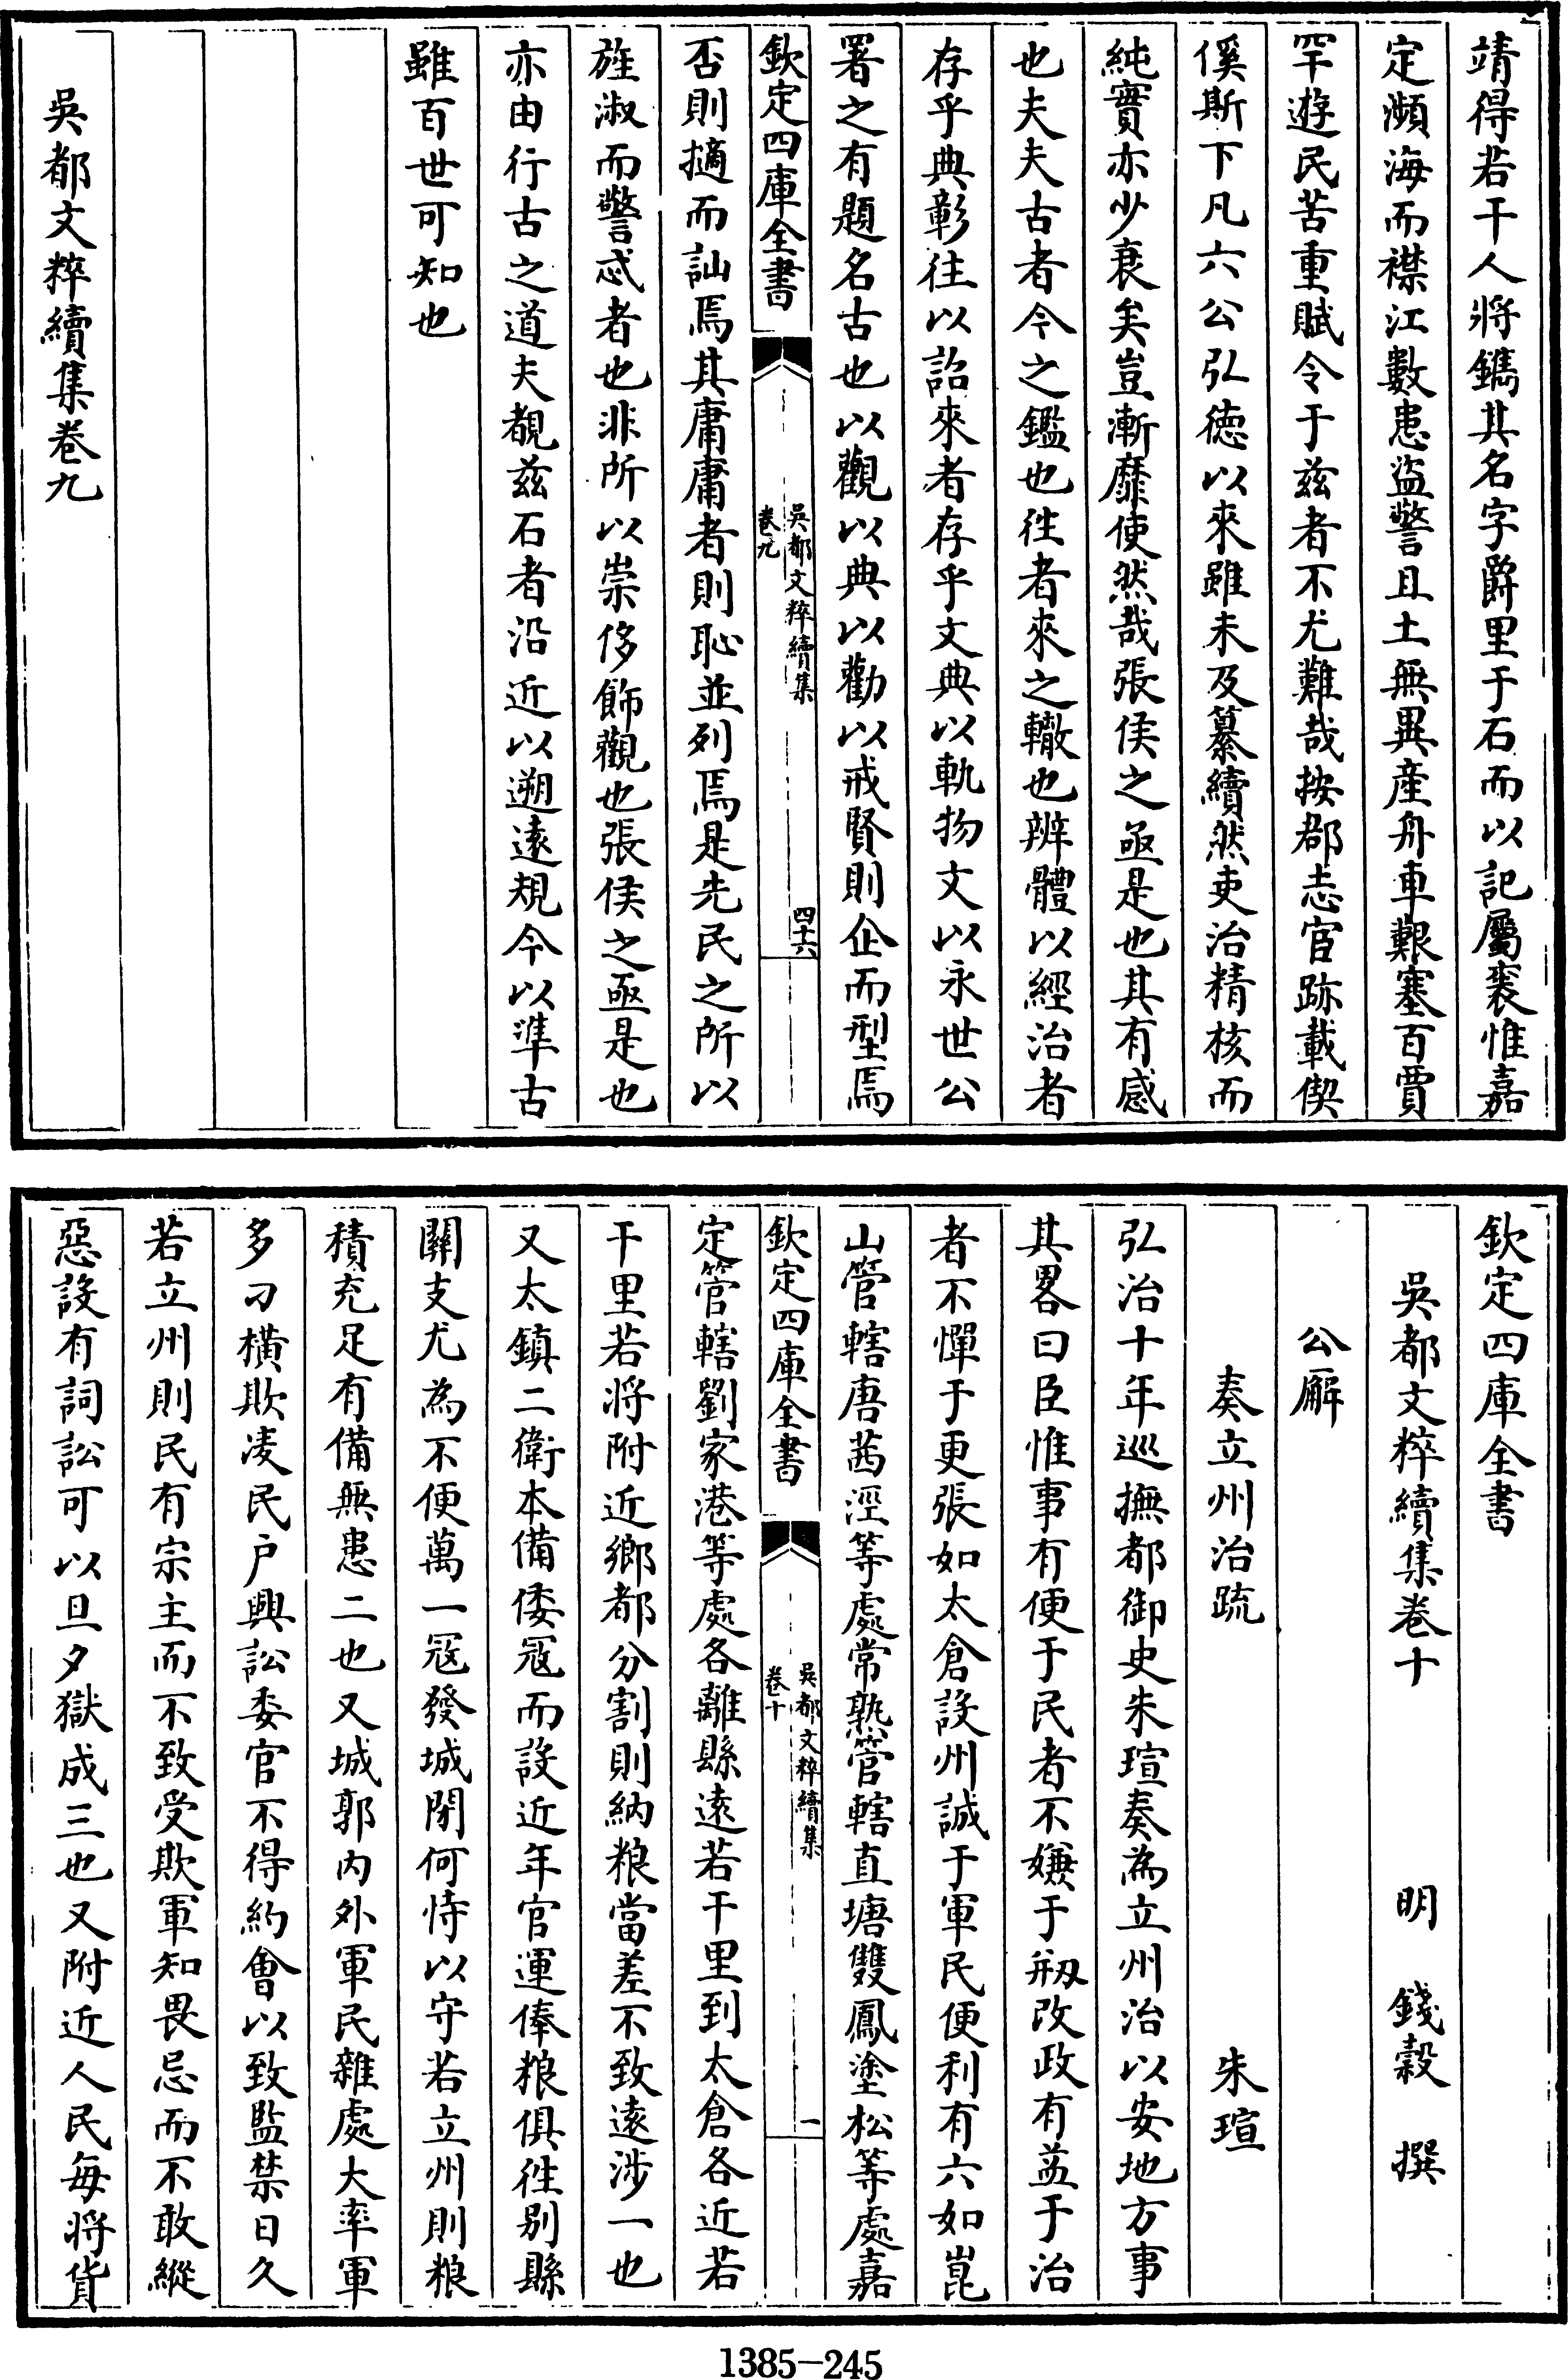 靖得若干人將鐫其名字爵里于石而以記屬裘惟嘉
定瀕海而襟江數患盜警且土無異産舟車艱塞百賈
罕遊民苦重賦令于兹者不尤難哉按郡志官跡載偰
傒斯下凡六公弘徳以來雖未及纂續然吏治精核而
純實亦少衰矣豈漸靡使然哉張侯之亟是也其有感
也夫夫古者今之鑑也徃者來之轍也辨體以經治者
存乎典彰往以詔來者存乎文典以軌物文以永世公
署之有題名古也以觀以典以勸以戒賢則企而型焉
欽定四庫全書
吳都文粹續集
卷九
四十六
否則擿而訕焉其庸庸者則恥並列焉是先民之所以
旌淑而警忒者也非所以崇侈飾觀也張侯之亟是也
亦由行古之道夫覩兹石者沿近以遡逺規今以準古
雖百世可知也
吳都文粹續集卷九
欽定四庫全書
吳都文粹續集卷十
明 錢穀 撰
公廨
奏立州治疏
朱瑄
弘治十年巡撫都御史朱瑄奏為立州治以安地方事
其畧曰臣惟事有便于民者不嫌于剏改政有益于治
者不憚于更張如太倉設州誠于軍民便利有六如崑
山管轄唐茜涇等處常熟管轄直塘雙鳳塗松等處嘉
欽定四庫全書
吳都文粹續集
卷十
一
定管轄劉家港等處各離縣逺若干里到太倉各近若
干里若將附近鄉都分割則納粮當差不致逺涉一也
又太鎮二衛本備倭冦而設近年官運俸粮俱徃别縣
關支尤為不便萬一冦發城閉何恃以守若立州則粮
積充足有備無患二也又城郭内外軍民雜處大率軍
多刁橫欺凌民户興訟委官不得約會以致監禁日久
若立州則民有宗主而不致受欺軍知畏忌而不敢縱
惡設有詞訟可以旦夕獄成三也又附近人民每將貨
1385-245